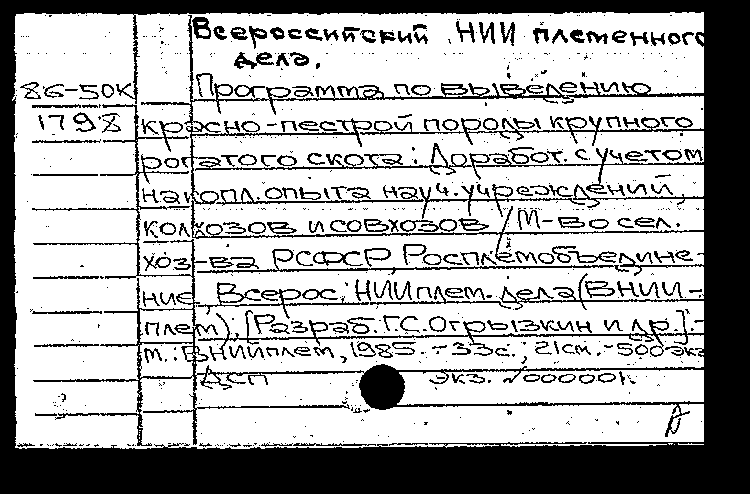 Всероссийский НИИ племенного
дела.
86-50К
Программа по выведению
1798
красно-пестрой породы крупного
рогатого скота: Доработ. с учетом
накопл. опыта науч. учреждений,
колхозов и совхозов / М-во сел.
хоз-ва РСФСР, Росплемобъедине-
ние, Всерос. НИИ плем. дела (ВНИИ-
плем); [Разраб. Г.С. Огрызкин и др.] -
м.: ВНИИплем, 1985. - 33с.; 21см. - 500 экз
Дсп экз. №000001.